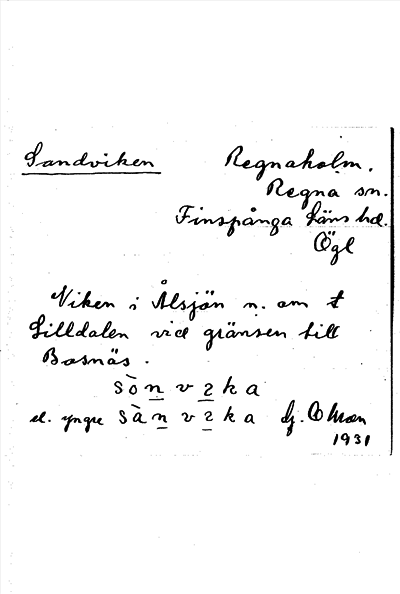 Sandviken Regnaholm.
Regna sn.
Finspånga läns hd.
Ögl
Viken i Ålsjön n. om t
Lilldalen vid gränsen till
Bosnäs.
sònvıka
el. yngre sànvıka
1931